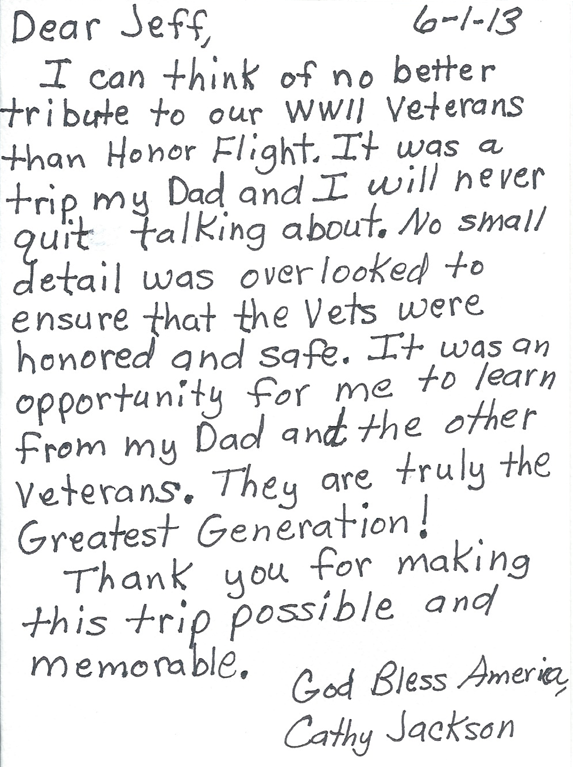 Dear Jeff, 6-1-13
I can think of no better
tribute to our WWII Veterans
than Honor Flight. It was a
trip my Dad and I will never
quit talking about. No small
detail was overlooked to
ensure that the Vets were
honored and safe. It was an
opportunity for me to learn
from my Dad and the other
Veterans. They are truly the
Greatest Generation!
Thank you for making
this trip possible and
memorable.
God Bless America,
Cathy Jackson